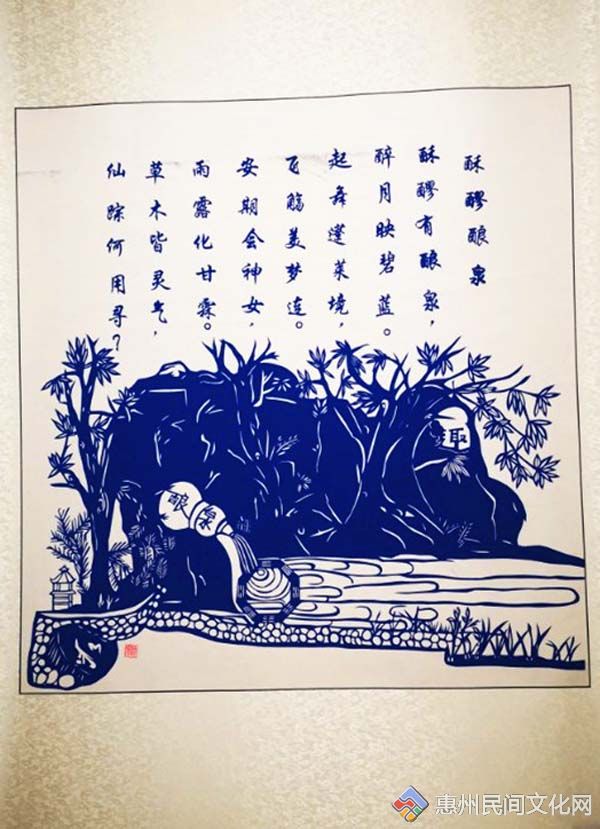 酥醪酿泉
酥醪有酿泉，
醉月映碧蓝。
起舞蓬莱境，
飞觞美梦连。
安期会神女，
雨露化甘霖。
草木皆灵气，
仙踪何用寻？
酿泉
惠州民间文化网